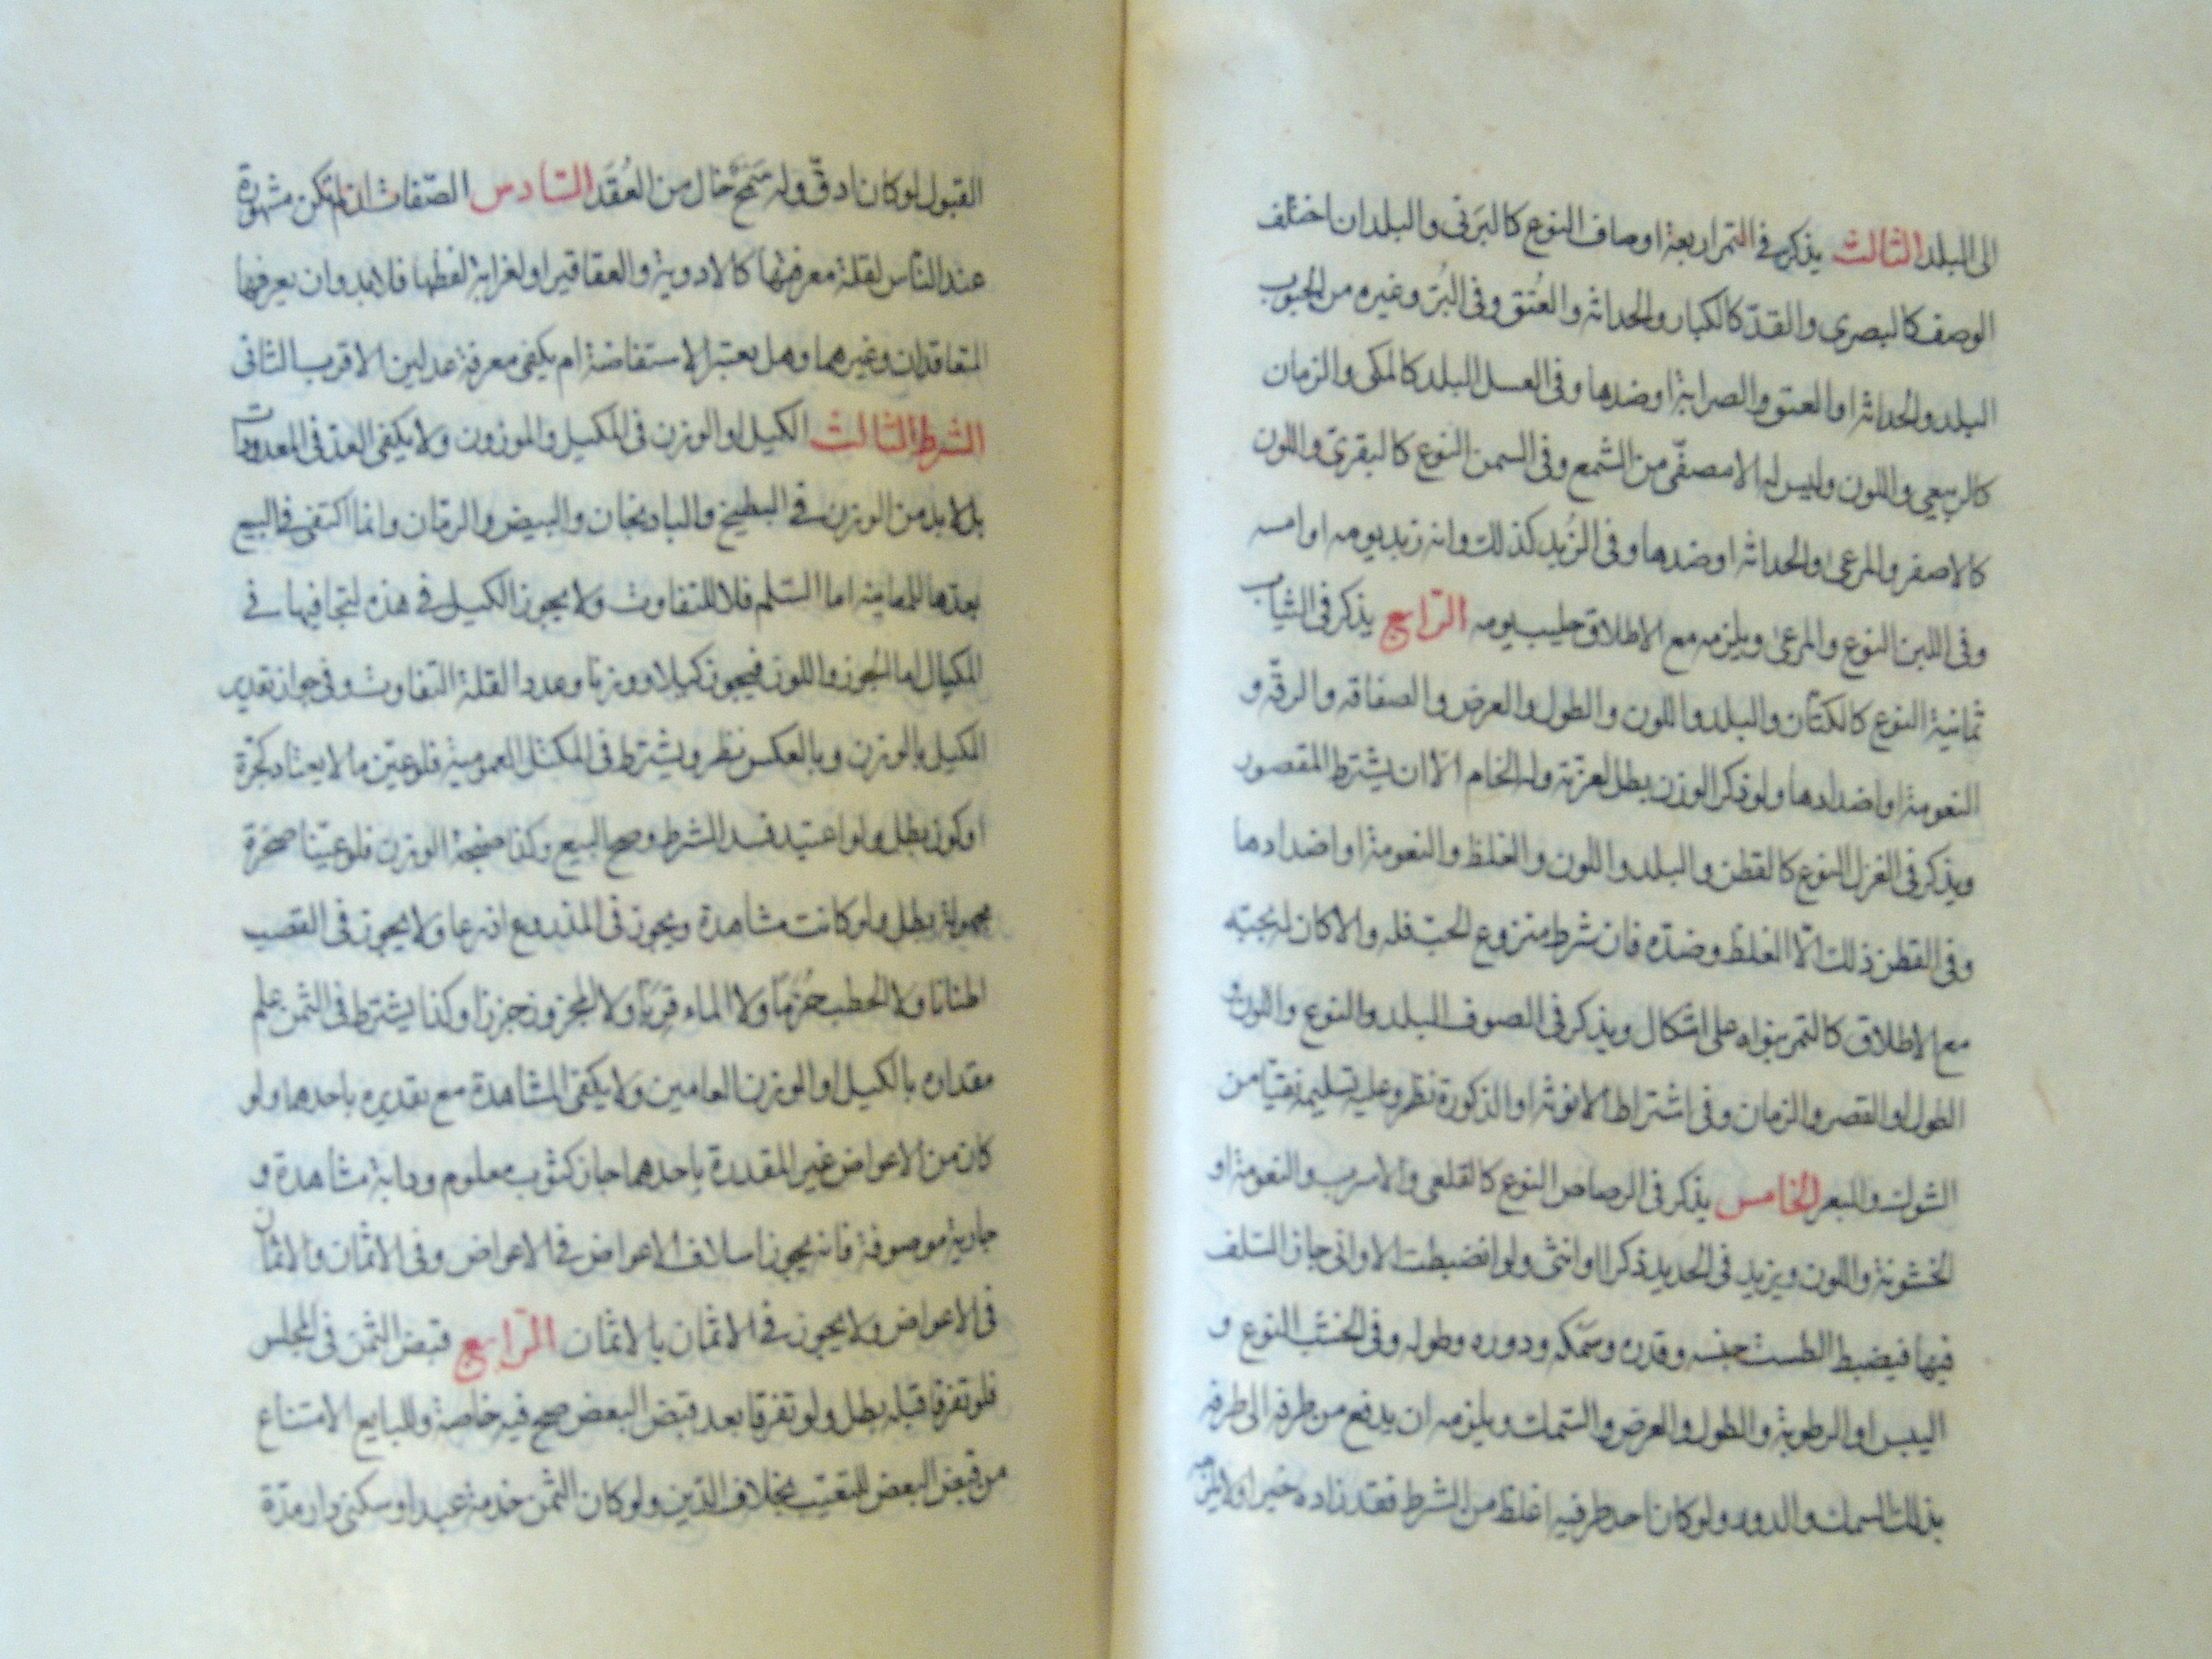 الى البلد الثالث يذكر في التمر اربعة اوصاف النوع كالبرنى والبلدان اختلف
الوصف كالبصرى والقدّ كالكبار والحداثة والعتق وفى البُرّ وغيره من الحبوب
البلد والحداثة او العتق والصرابة اوضدها وفى العسل البلد كالمكى والزمان
كالربيعى واللون وليس له الا مصفّى من الشمع وفى السمن النوع كالبقرى واللون
كالاصفر والمرعى والحداثة اوضدها وفى الزُبد كذلك وانه زبد يومه او امسه
وفى اللبن النوع والمرعى ويلزمه مع الاطلاق حليب يومه الرّابع يذكر فى الثياب
ثمانية النوع كالكتّان والبلد واللون والطول والعرض والصفاقه والرقّه و
النعومة او اضدادها ولو ذكر الوزن بطل لعزّته وله الخام الّا ان يشترط المقصور
ويذكر فى الغزل النوع كالقطن والبلد واللون والغلظ والنعومة او اضدادها
وفى القطن ذلك الّا الغلظ وضدّه فان شرط منزوع الحبّ فله والا كان له بحبّه
مع الاطلاق كالتمر بنواه على اشكال ويذكر فى الصوف البلد والنوع واللون و
الطول او القصر والزمان وفى اشتراط الانوثة او الذكورة نظر وعليه تسليمه نقيّا من
الشوك والبعر الخامس يذكر فى الرصاص النوع كالقلعى والاسرب والنعومة او
الخشونة واللون ويزيد فى الحديد ذكرا او انثى ولو انضبطت الاوانى جاز السّلف
فيها فيضبط الطست جنسه وقدره وسمكه ودوره وطوله وفى الخشب النوع و
اليبس او الرطوبة والطول والعرض والسّمك ويلزمه ان يدفع من طرفه الى طرفه
بذلك السمك والدور ولو كان احد طرفيه اغلظ من الشرط فقد زاده خيرا ولا يلزمه
القبول لو كان ادقّ وله سَمْحٌ خال من العُقَد السّادس الصّفات ان لم تكن مشهورة
عند النّاس لقلة معرفتها كالادوية والعقاقير او لغرابة لفظها فلابد وان يعرفها
المتعاقدان وغيرهما وهل يعتبر الاستفاضة ام يكفى معرفة عدلين الاقرب الثانى
الشرط الثالث الكيل او الوزن فى المكيل والموزون ولا يكفى العدّ فى المعدودات
بل لابد من الوزن فى البطيخ والباذنجان والبيض والرمّان وانما اكتفى فى البيع
بعدّها للمعاينه اما السّلم فلا للتفاوت ولا يجوز الكيل فى هذه لتجافيها فى
المكيال اما الجوز واللوز فيجوز كيلا ووزنا وعددا لقلة التفاوت وفى جواز تقدير
الكيل بالوزن وبالعكس نظر ويشترط فى المكيل العمومية فلو عيّن ما لا يعتاد كجَرّة
او كوز بطل ولو اعتيد فسد الشرط وصح البيع وكذا صنجة الوزن فلو عيّنا صخرة
مجهولة بطل ولو كانت مشاهدة ويجوز فى المذروع اذرعا ولا يجوز فى القصب
اطنانا ولا الحطب حُزَمًا ولا الماء قِرَبًا ولا المجزوز جززا وكذا يشترط فى الثمن علم
مقداره بالكيل او الوزن العامين ولا يكفى المشاهدة مع تقديره باحدهما ولو
كان من الاعواض غير المقدرة باحدهما جاز كثوب معلوم ودابة مشاهدة و
جارية موصوفة فانه يجوز اسلاف الاعواض فى الاعواض وفى الاثمان والاثمان
فى الاعواض ولا يجوز فى الاثمان بالاثمان الرّابع قبض الثمن فى المجلس
فلو تفرقا قبله بطل ولو تفرقا بعد قبض البعض صح فيه خاصة وللبايع الامتناع
من قبض البعض للتعيّب بخلاف الدّين ولو كان الثمن خدمة عبد او سكنى دار مدّة